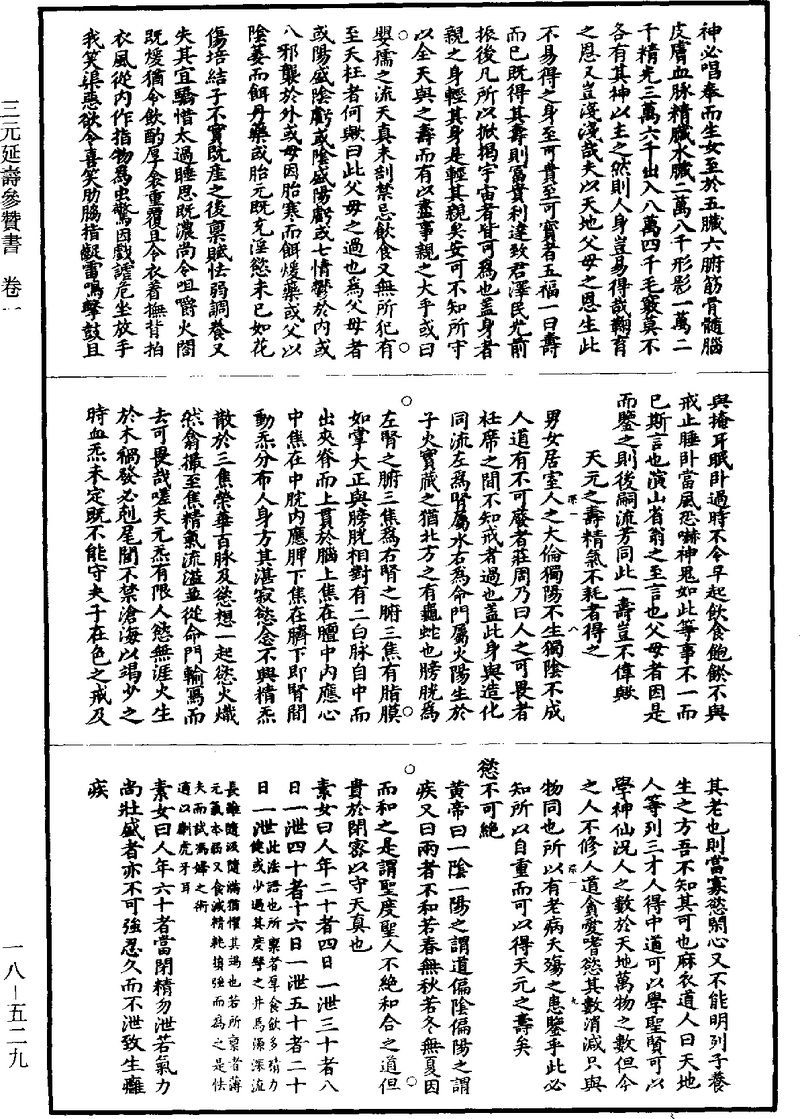 三元延壽參贊書　卷一
神必唱奉而生女至於五臟六腑筋骨髓腦
皮膚血脉精臟水臟二萬八千形影一萬二
千精光三萬六千出入八萬四千毛竅莫不
各有其神以主之然則人身豈易得哉鞠育
之恩又豈淺淺哉夫以天地父母之恩生此
不易得之身至可貴至可寳者五福一曰壽
而已既得其壽則富貴利達致君澤民光前
振後凡所以掀揭宇宙者皆可為也蓋身者
親之身輕其身是輕其親矣安可不知所守
以全天與之壽而有以盡事親之大乎或曰
嬰孺之流天真未剖禁忌飲食又無所犯有
至夭枉者何歟曰此父母之過也為父母者
或陽盛陰虧或陰盛陽虧或七情鬱於内或
八邪襲於外或母因胎寒而餌煖藥或父以
陰萎而餌丹藥或胎元既充淫慾未已如花
傷培結子不實既産之後禀賦怯弱調養又
失其宜驕惜太過睡思既濃尚令咀嚼火閤
既煖猶令飲酌厚衾重覆且令衣着撫背拍
衣風從内作指物為虫驚因戲謔危坐放手
我笑渠惡欲令喜笑肋脇指齪雷鳴擊鼓且
與掩耳眠卧過時不令早起飲食飽飫不與
戒止睡卧當風恐嚇神鬼如此等事不一而
已斯言也演山省翁之至言也父母者因是
而鑒之則後嗣流芳同此一壽豈不偉歟
天元之壽精氣不耗者得之
男女居室人之大倫獨陽不生獨陰不成
人道有不可廢者莊周乃曰人之可畏者
衽席之間不知戒者過也蓋此身與造化
同流左為腎屬水右為命門屬火陽生於
子火寳藏之猶北方之有龜蛇也膀胱為
左腎之腑三焦為右腎之腑三焦有脂膜
如掌大正與膀胱相對有二白脉自中而
出夾脊而上貫於腦上焦在膻中内應心
中焦在中脘内應脾下焦在臍下即腎間
動炁分布人身方其湛寂慾念不興精炁
散於三焦榮華百脉及慾想一起慾火熾
然翕撮三焦精氣流溢並從命門輸寫而
去可畏哉嗟夫元炁有限人慾無涯火生
於木禍發必剋尾閭不禁滄海以竭少之
時血炁未定既不能守夫子在色之戒及
其老也則當寡慾閑心又不能明列子養
生之方吾不知其可也麻衣道人曰天地
人等列三才人得中道可以學聖賢可以
學神仙況人之數於天地萬物之數但今
之人不修人道貪愛嗜慾其數消滅只與
物同也所以有老病夭殤之患鑒乎此必
知所以自重而可以得天元之壽矣
慾不可絶
黄帝曰一陰一陽之謂道偏陰偏陽之謂
疾又曰兩者不和若春無秋若冬無夏因
而和之是謂聖度聖人不絶和合之道但
貴於閉密以守天真也
素女曰人年二十者四日一泄三十者八
日一泄四十者十六日一泄五十者二十
日一泄此法語也所禀者厚食飲多精力
健或少過其度譬之井焉源深流
長雖隨汲隨滿猶懼其竭也若所禀者薄
元氣本弱又食減精耗損強而為之是怯
夫而試馮婦之術
適以劘虎牙耳
素女曰人年六十者當閉精勿泄若氣力
尚壯盛者亦不可強忍久而不泄致生癰
疾
一八―五二九